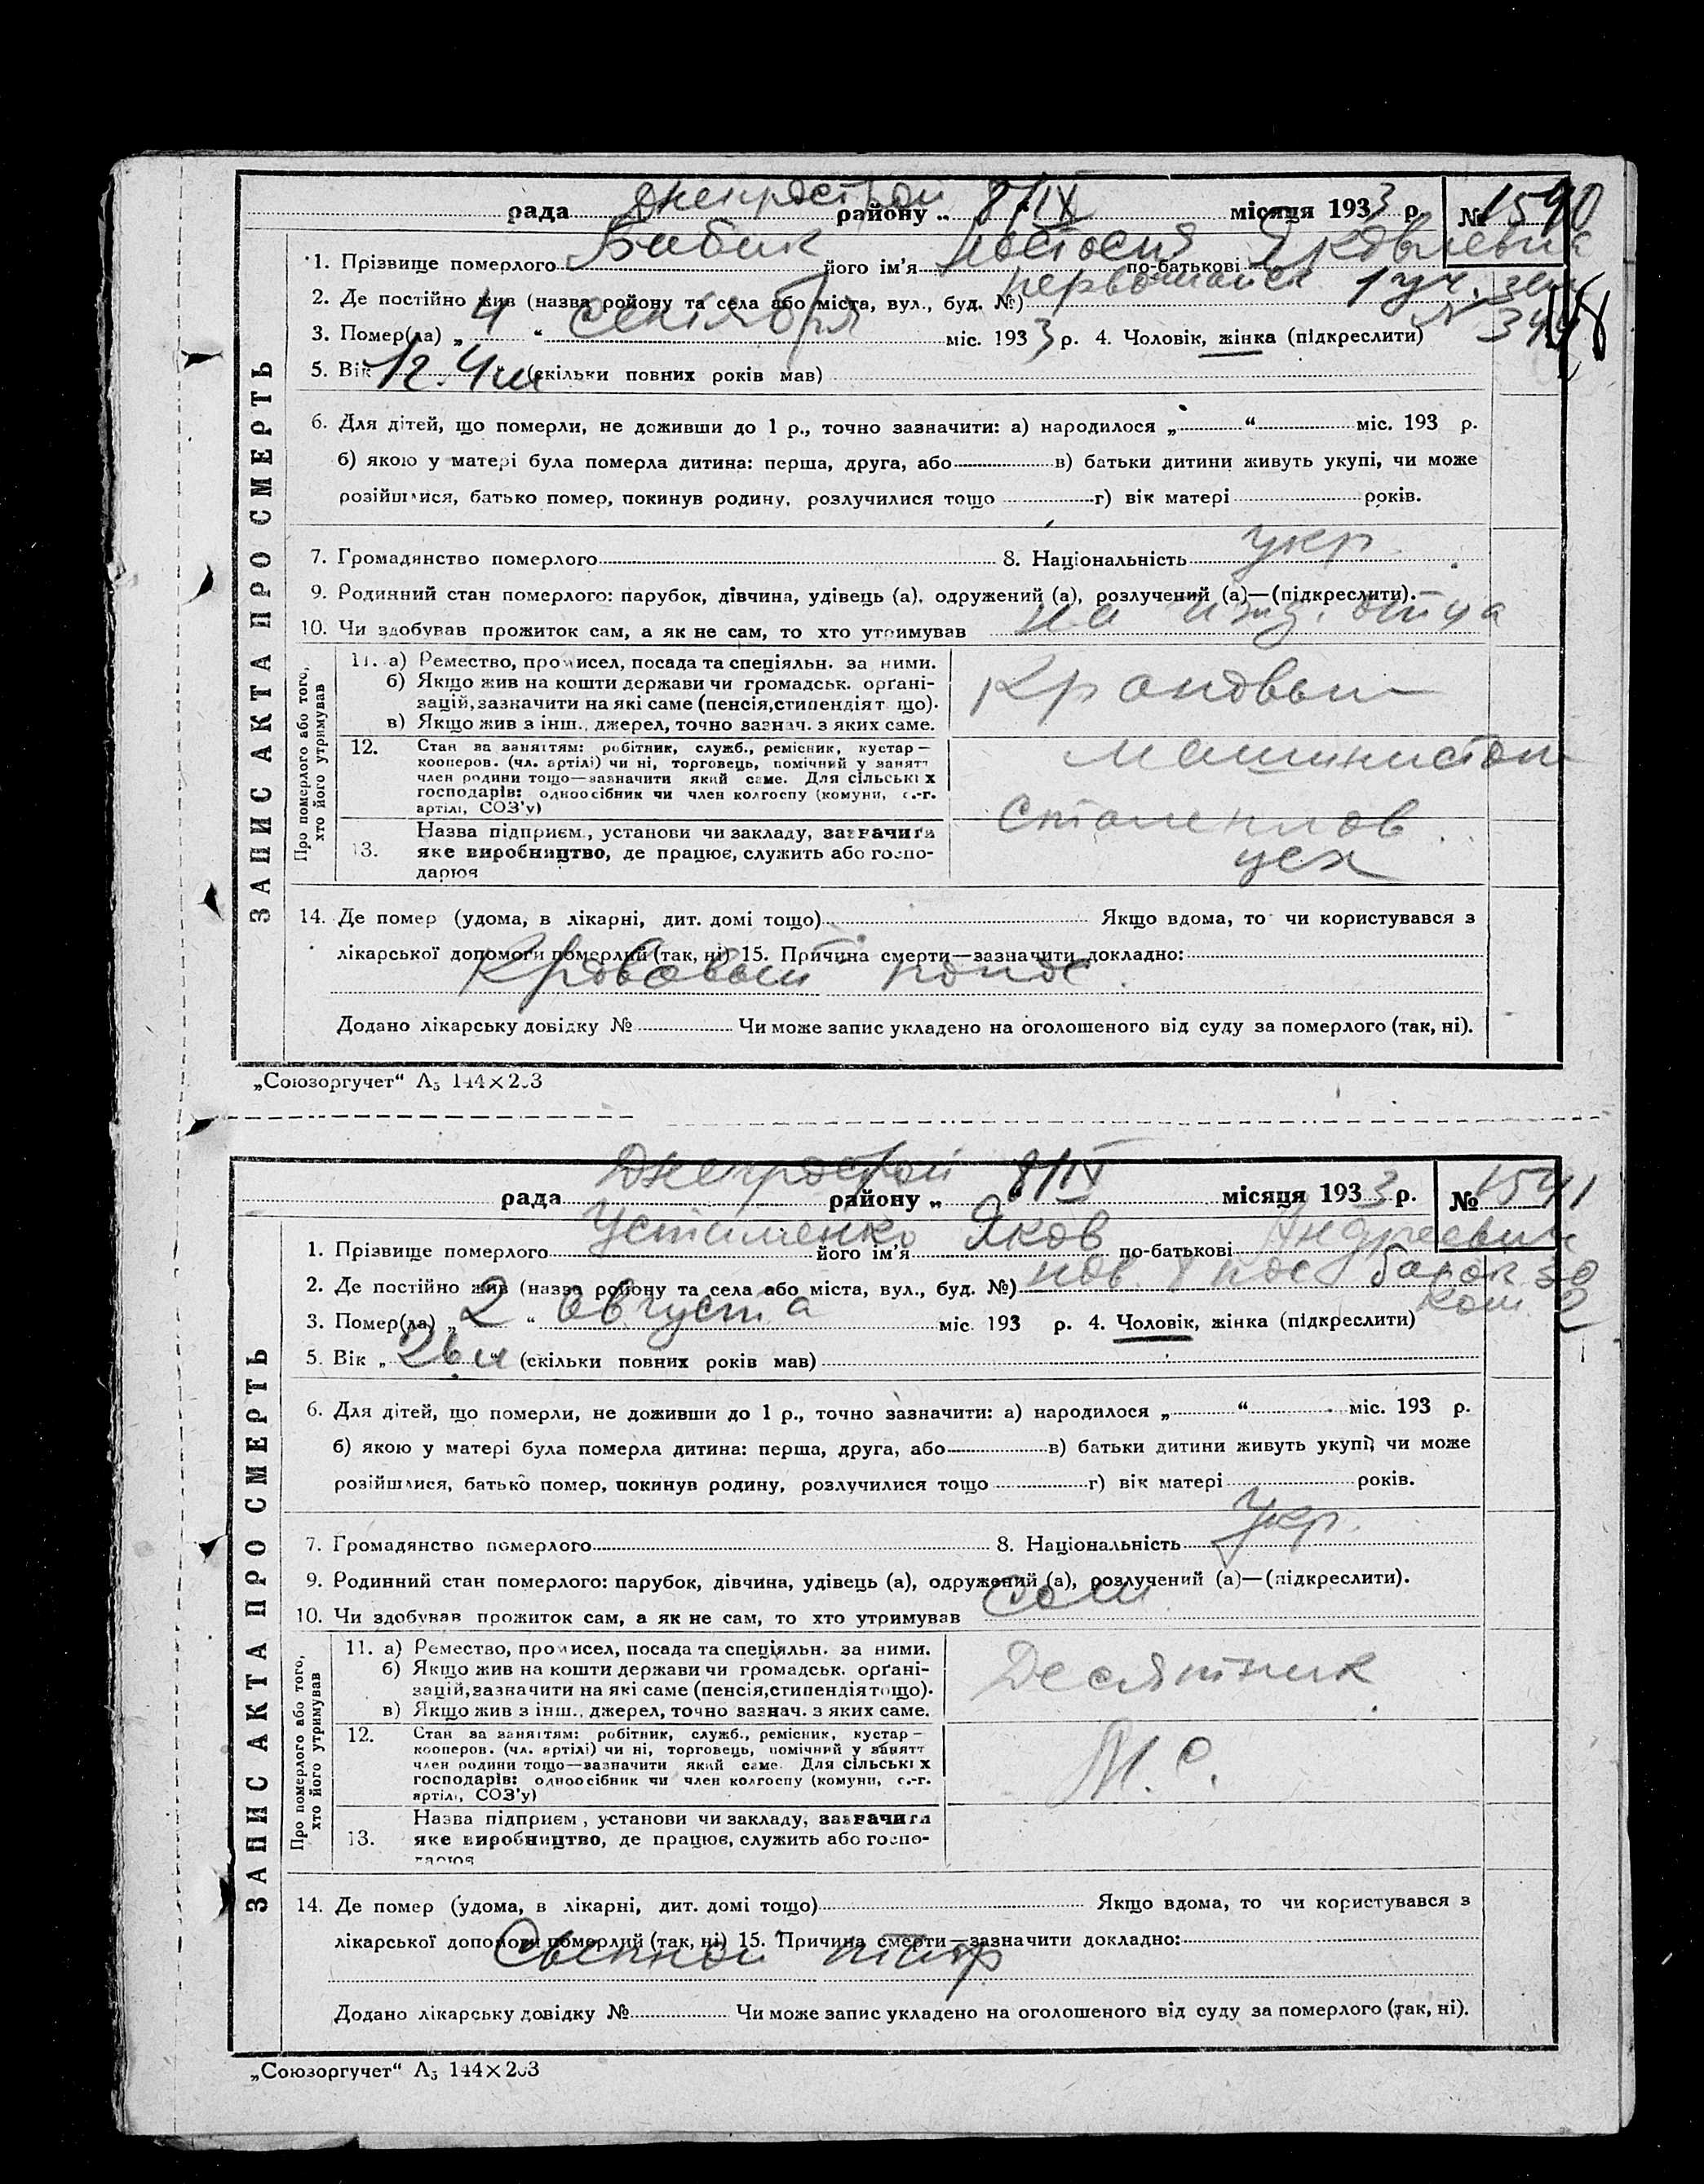 ЗАПИС АКТА ПРО СМЕРТЬ
рада Днепрострой району „ 8/IX місяця 1933 р. № 1540
1. Прізвище померлого Бабик його ім'я по-батькові Яковлевна
2. Де постійно жив (назва району та села або міста, вул., буд. №) 1 уч. зем
3. Помер(ла) „ 4 “ сентября міс. 1933 р. 4. Чоловік, жінка (підкреслити) № 344
5. Вік (скільки повних років мав)
6. Для дітей, що померли, не доживши до 1 р., точно зазначити: а) народилося „ “ міс. 193 р.
б) якою у матері була померла дитина: перша, друга, або в) батьки дитини живуть укупі, чи може
розійшлися, батько помер, покинув родину, розлучилися тощо г) вік матері років.
7. Громадянство померлого 8. Національність укр.
9. Родинний стан померлого: парубок, дівчина, удівець (а), одружений (а), розлучений (а)—(підкреслити).
10. Чи здобував прожиток сам, а як не сам, то хто утримував на ижд. отца
Про померлого або того,
хто його утримував
11. а) Ремество, промисел, посада та спеціяльн. за ними.
б) Якщо жив на кошти держави чи громадськ. орґані-
зацій, зазначити на які саме (пенсія, стипендія тощо).
в) Якщо жив з інш., джерел, точно зазнач. з яких саме.
Крановый
12. Стан за заняттям: робітник, служб., ремісник, кустар—
кооперов. (чл. артілі) чи ні, торговець, помічний у занятт
член родини тощо—зазначити який саме. Для сільських
господарів: одноосібник чи член колгоспу (комуни, с.-г.
артілі, СОЗ'у)
машинистом
Назва підприєм., установи чи закладу, зазначити
13. яке виробництво, де працює, служить або госпо-
дарює
Сталеплав.
цех
14. Де помер (удома, в лікарні, дит. домі тощо) Якщо вдома, то чи користувався з
лікарської допомоги померлий (так, ні) 15. Причина смерти—зазначити докладно:
Кровавый понос.
Додано лікарську довідку № Чи може запис укладено на оголошеного від суду за померлого (так, ні).
„Союзоргучет“ А5 144×203
ЗАПИС АКТА ПРО СМЕРТЬ
рада Днепрострой району „ 8/IX “ місяця 1933 р. № 1541
1. Прізвище померлого Устименко його ім'я Яков по-батькові Андреевич
2. Де постійно жив (назва району та села або міста, вул., буд. №) пос барак 50
3. Помер(ла) „ 2 “ августа міс. 193 р. 4. Чоловік, жінка (підкреслити) ком. 2
5. Вік „ “ (скільки повних років мав)
6. Для дітей, що померли, не доживши до 1 р., точно зазначити: а) народилося „ “ міс. 193 р.
б) якою у матері була померла дитина: перша, друга, або в) батьки дитини живуть укупі, чи може
розійшлися, батько помер, покинув родину, розлучилися тощо г) вік матері років.
7. Громадянство померлого 8. Національність Укр.
9. Родинний стан померлого: парубок, дівчина, удівець (а), одружений (а), розлучений (а)—(підкреслити).
10. Чи здобував прожиток сам, а як не сам, то хто утримував Сам
Про померлого або того,
хто його утримував
11. а) Ремество, промисел, посада та спеціяльн. за ними.
б) Якщо жив на кошти держави чи громадськ. орґані-
зацій, зазначити на які саме (пенсія, стипендія тощо).
в) Якщо жив з інш., джерел, точно зазнач. з яких саме.
Десятник
12. Стан за заняттям: робітник, служб., ремісник, кустар—
кооперов. (чл. артілі) чи ні, торговець, помічний у занятт
член родини тощо—зазначити який саме. Для сільських
господарів: одноосібник чи член колгоспу (комуни, с.-г.
артілі, СОЗ'у)
М.С.
Назва підприєм., установи чи закладу, зазначити
13. яке виробництво, де працює, служить або госпо-
дарює
14. Де помер (удома, в лікарні, дит. домі тощо) Якщо вдома, то чи користувався з
лікарської допомоги померлий (так, ні) 15. Причина смерти—зазначити докладно:
Сыпной тиф
Додано лікарську довідку № Чи може запис укладено на оголошеного від суду за померлого (так, ні).
„Союзоргучет“ А5 144×203